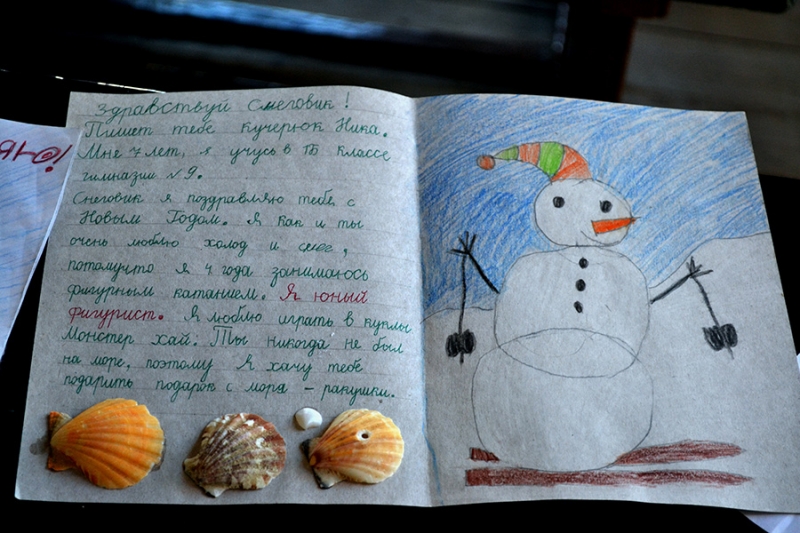 Здравствуй Снеговик !
Пишет тебе Кучерюк Ника.
Мне 7 лет, я учусь в 1Б классе
гимназии №9.
Снеговик я поздравляю тебе, с
Новым Годом. Я как и ты
очень люблю холод и снег,
потомучто я 4 года занимаюсь
фигурным катанием. Я юный
фигурист. Я люблю играть в куклы
Монстер хай. Ты никогда не был
на море, поэтому я хачу тебе
подарить подарок с моря – ракушки.